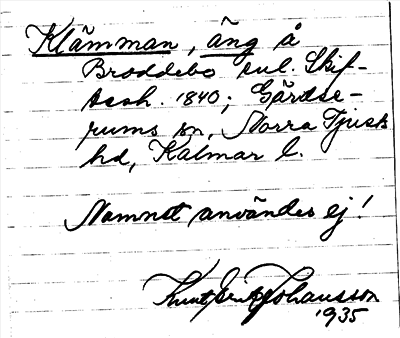 Klämman, äng å
Broddebo enl. Skif-
tesh. 1840; Gärdse-
rums sn, Norra Tjusts
hd, Kalmar l.
Namnet användes ej!
Knut Erik Johansson
1935